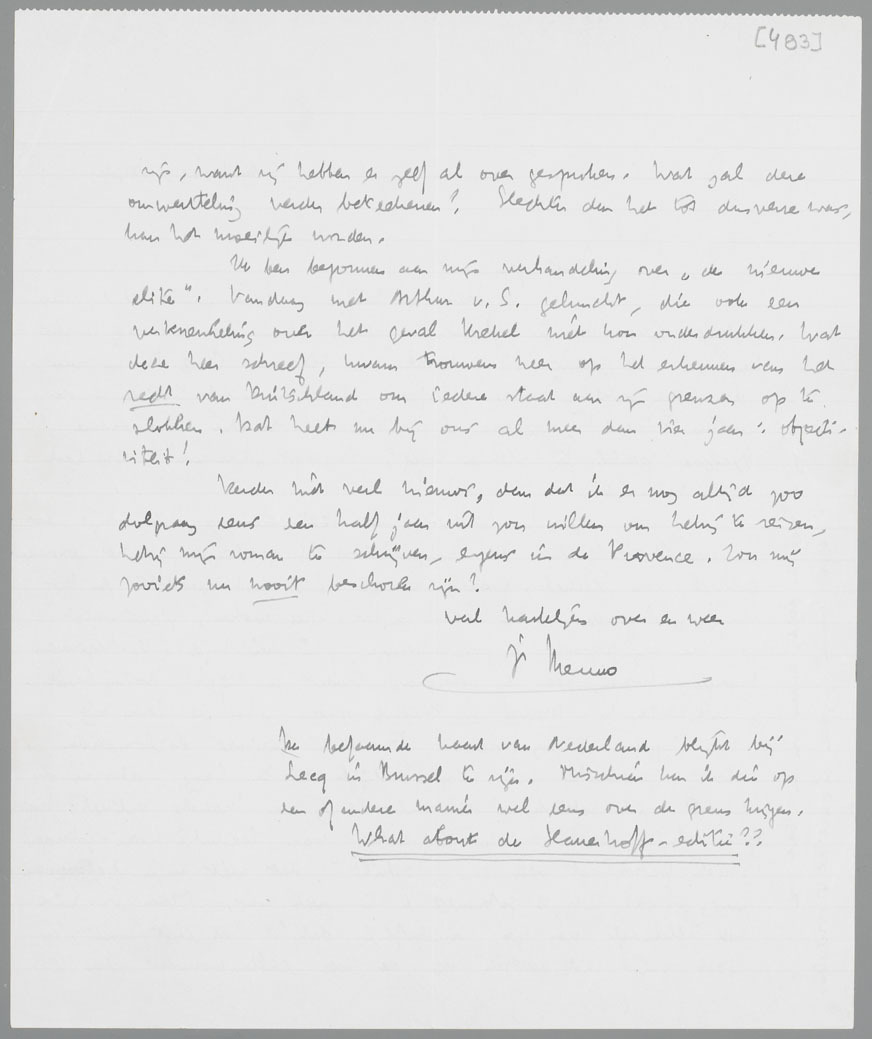 [483]
zijn, want zij hebben er zelf al over gesproken. Wat zal deze
omwenteling verder beteekenen? Slechter dan het tot dusverre was,
kan het moeilijk worden.
Ik ben begonnen aan mijn verhandeling over „de nieuwe
elite". Vandaag met Arthur v. S. geluncht, die ook een
verkneukeling over het geval niet kon onderdrukken. Wat
deze heer schreef, kwam trouwens neer op het erkennen van het
recht van Duitschland om iedere staat aan zijn grenzen op te
slokken. Dat heet nu bij ons al meer dan vier jaar: objecti-
viteit!
Verder niet veel nieuws, dan dat ik er nog altijd zoo
dolgraag eens een half jaar uit zou willen om hetzij te reizen,
hetzij mijn roman te schrijven, ergens in de Provence. Zou mij
zooiets nu nooit beschoren zijn?
veel hartelijks over en weer
je Menno
De befaamde kaart van Nederland blijkt bij
Lecq in Brussel te zijn. Misschien kan ik die op
een of andere manier wel eens over de grens krijgen.
What about de Slauerhoff-editie??